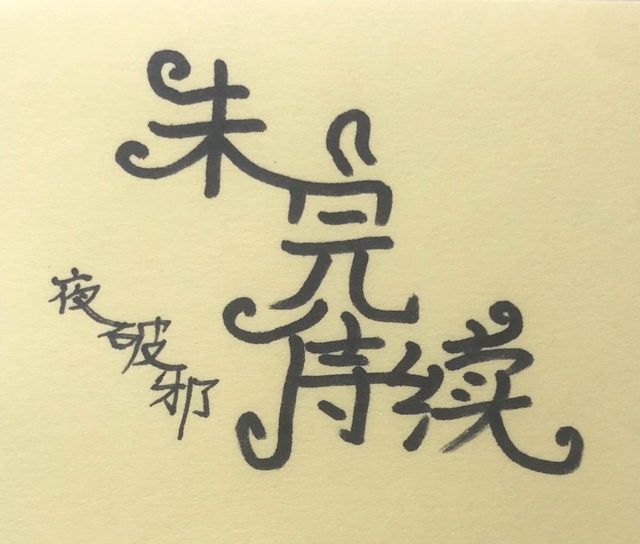 未完待续
夜破邪